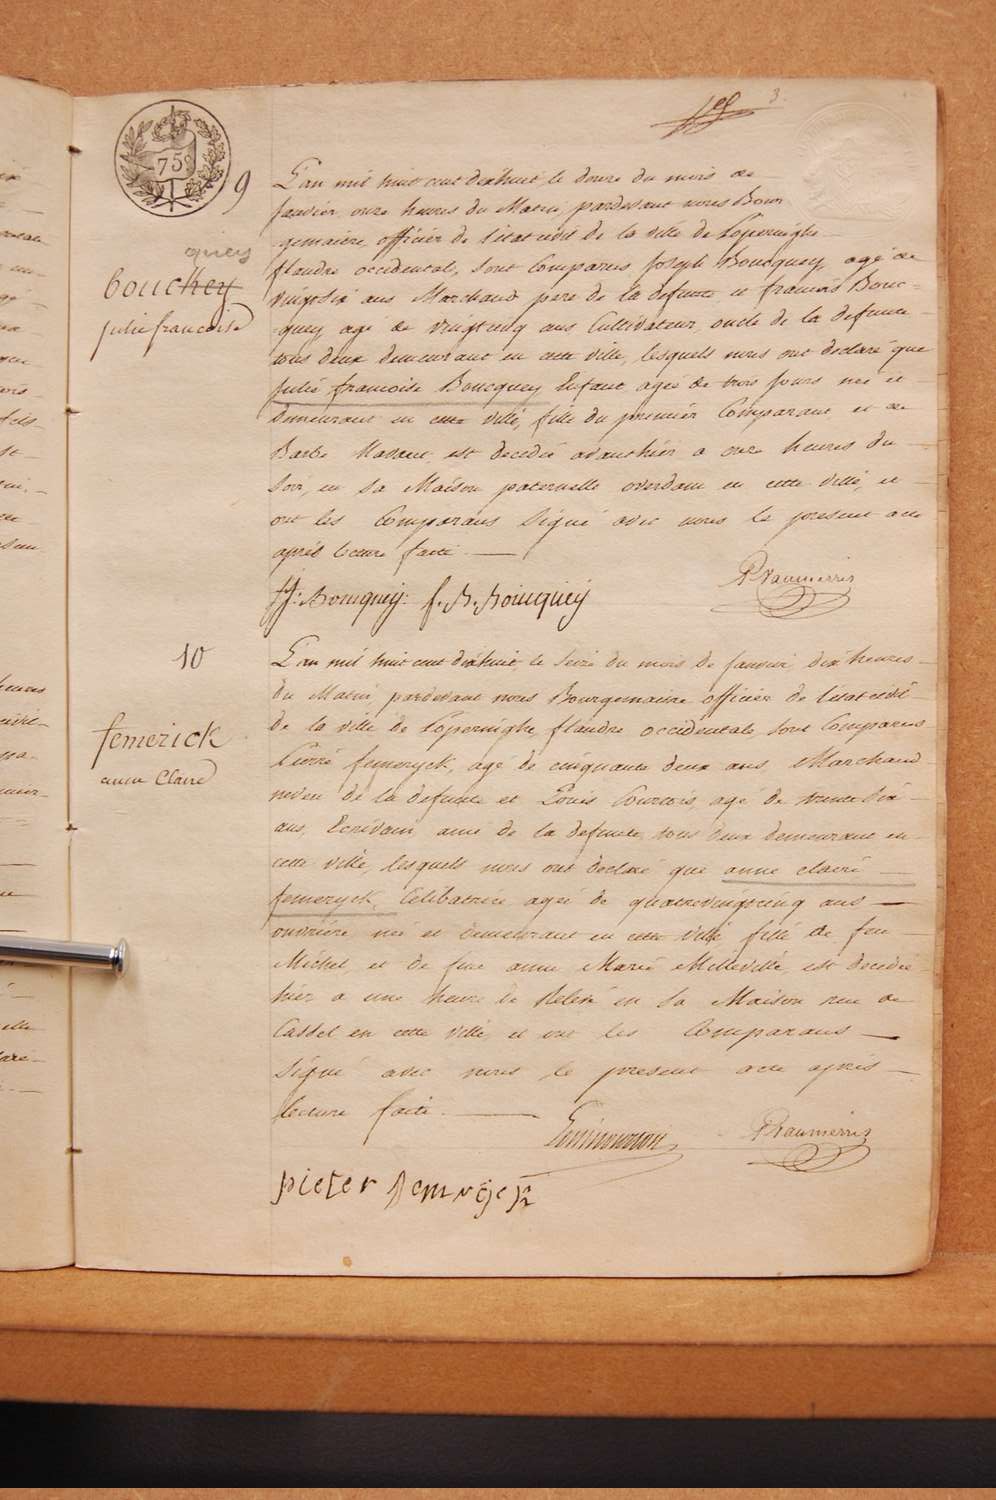 3.
75c
9
L'an mil huit cent dixhuit, le douze du mois de
Janvier onze heures du Matin, pardevant nous Bour
gemaitre officier de l'état civil de la ville de Poperinghe
quey
flandre occidentale, sont Comparus Joseph Boucquey, agé de
bouchey
vingtsix ans Marchand pere de la defunte et francois Bouc=
julie francoise
quey agé de vingtcinq ans Cultivateur, oncle de la defunte
tous deux demeurant en cette ville, lesquels nous ont declaré que
Julie francoise Boucquey Enfant agée de trois jours née et
demeurant en cette ville, fille du premier Comparant et de
Barbe est decedée avanthier a onze heures du
Soir, en sa Maison paternelle overdam en cette ville, et
ont les Comparans Signé avec nous le present acte
après lecture faite.
J: Boucquey: f. B. Boucquey
10
L'an mil huit cent dixhuit le seize du mois de Janvier dix heures
du Matin pardevant nous Bourgemaitre officier de l'état civil
de la ville de Poperinghe flandre occidentale sont Comparus
femerick
Pierre femeryck, agé de cinquante deux ans Marchand
anne Claire
neveu de la defunte et Louis Courtois, agé de trente six
ans, Ecrivain, ami de la defunte, tous deux demeurant en
cette ville, lesquels nous ont declaré que anne claire
femeryck, Celibatrice agée de quatrevingtcinq ans
ouvrière née et demeurant en cette ville fille de feu
Michel, et de feue anne Marie Milleville, est decedée
hier a une heure de Relevé en sa Maison rue de
Cassel en cette ville, et ont les Comparans
Signé avec nous le present acte après
lecture faite.
pieter femryck